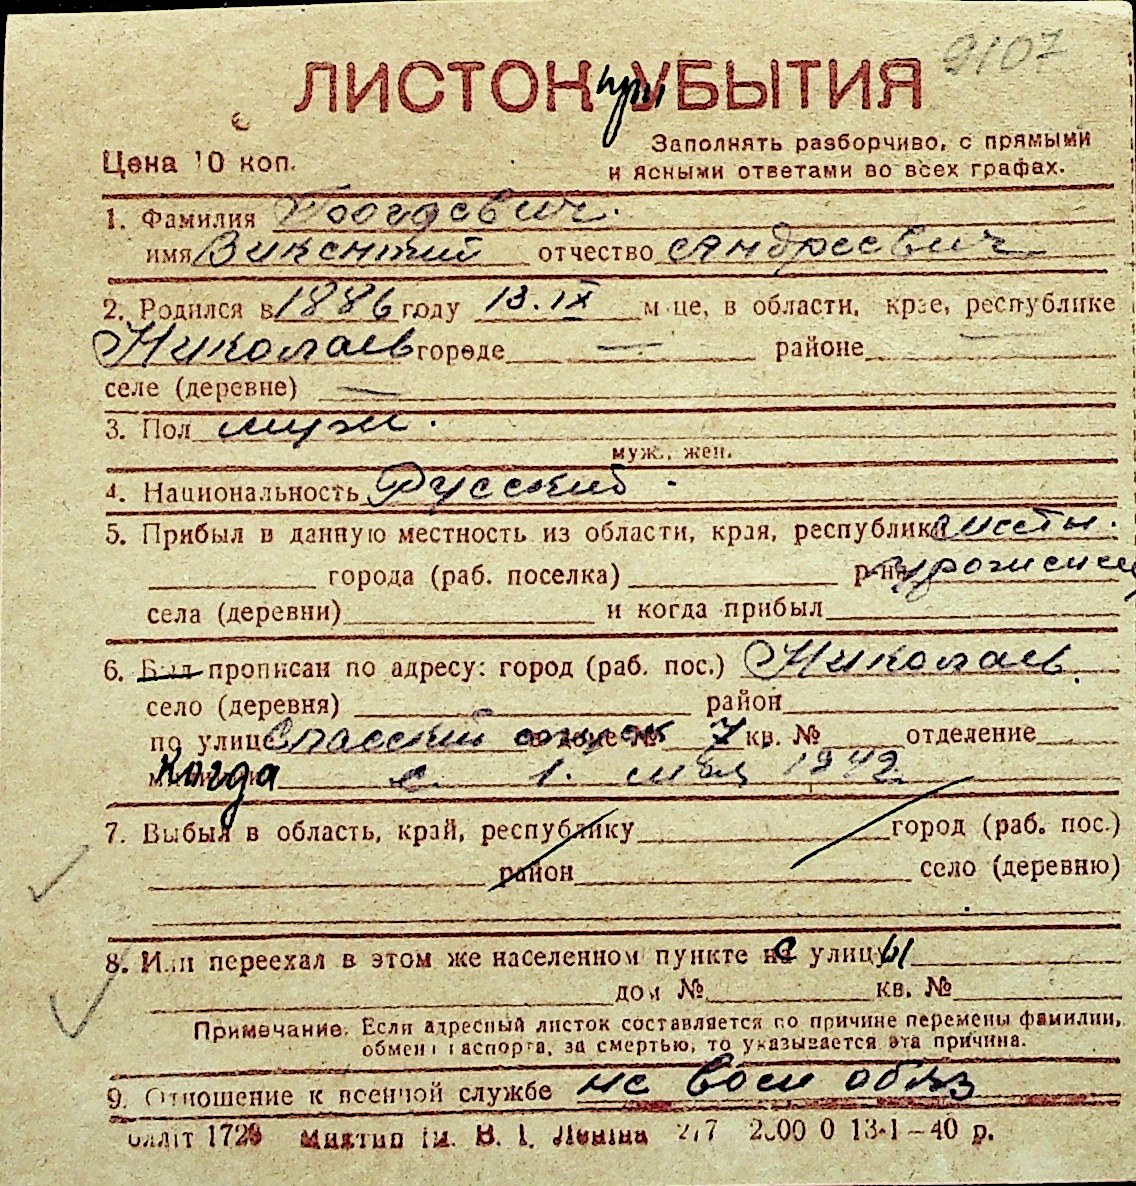 9107
ЛИСТОК при УБЫТИЯ
Цена 10 коп.
Заполнять разборчиво, с прямыми
и ясными ответами во всех графах.
1. Фамилия
имя Викентий отчество Андреевич
2. Родился в 1886 году 13.IX м-це, в области, крае, республике
Николаев городе — районе —
селе (деревне) —
3. Пол муж.
муж., жен.
4. Национальность Русский.
5. Прибыл в данную местность из области, края, республики местн.
города (раб. поселка) р-на уроженец
села (деревни) и когда прибыл
6. Был прописан по адресу: город (раб. пос.) Николаев.
село (деревня) район
по улице Спасский спуск 7 кв. № отделение
Когда с 1. мая 1942
7. Выбыл в область, край, республику город (раб. пос.)
район село (деревню)
8. Или переехал в этом же населенном пункте с улицы
дом № кв. №
Примечание. Если адресный листок составляется по причине перемены фамилии,
обмена паспорта, за смертью, то указывается эта причина.
9. Отношение к военной службе не воен обяз
Обліт 1726 Миктип ім. В. І. Леніна 277 2000 0 13-1-40 р.